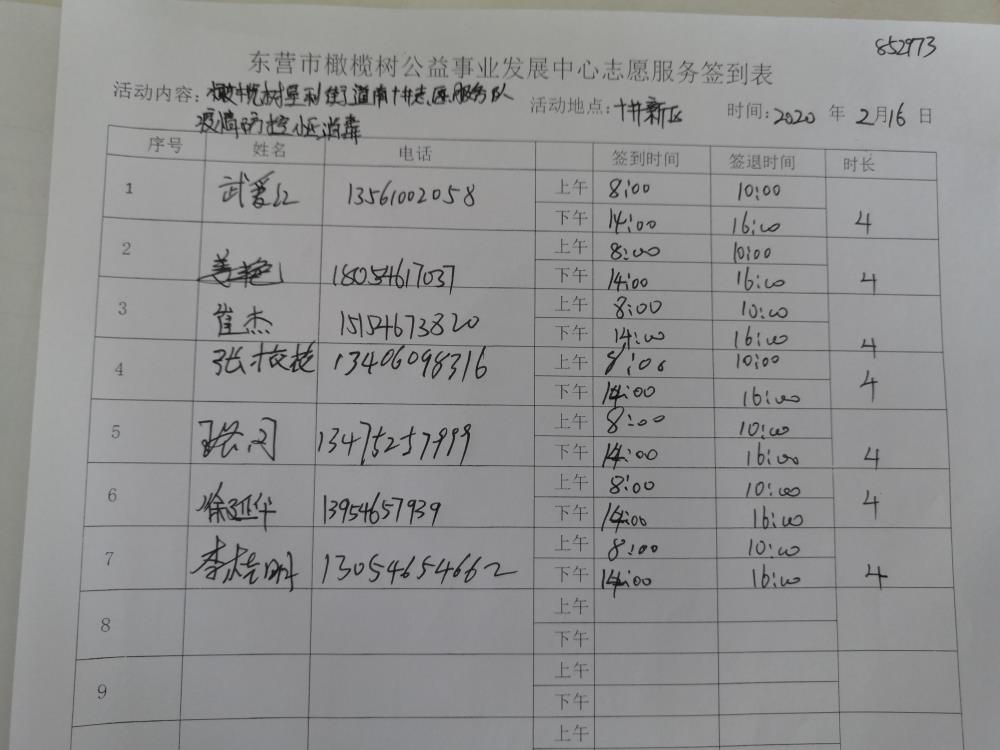 852973
东营市橄榄树公益事业发展中心志愿服务签到表
活动内容：橄榄树垦利街道南十井志愿服务队 活动地点：十井新区 时间：2020 年 2月16 日
疫情防控小区消毒
序号 姓名 电话 签到时间 签退时间 时长
1 武爱江 13561002058 上午 8:00 10:00
下午 14:00 16:00 4
2 姜艳 18054617037 上午 8:00 10:00
下午 14:00 16:00 4
3 崔杰 15154673820 上午 8:00 10:00
下午 14:00 16:00 4
4 张 13406098316 上午 8:00 10:00
下午 14:00 16:00 4
5 13475257999 上午 8:00 10:00
下午 14:00 16:00 4
6 徐延华 13954657939 上午 8:00 10:00
下午 14:00 16:00 4
7 李志明 13054654662 上午 8:00 10:00
下午 14:00 16:00 4
8 上午
下午
9 上午
下午
上午